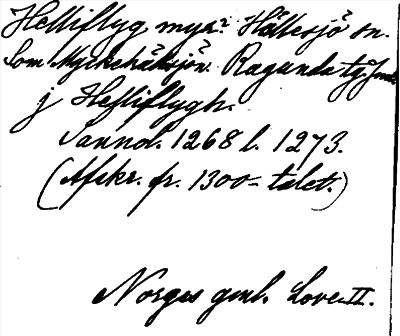 Helliflyg myr? Hällesjö sn.
Som Myckelåsjön. Ragunda tg Jmtl.
j Hefliflygh.
Sannol. 1268 l. 1273.
(Afskr. fr. 1300-talet.)
Norges gml. Love II.